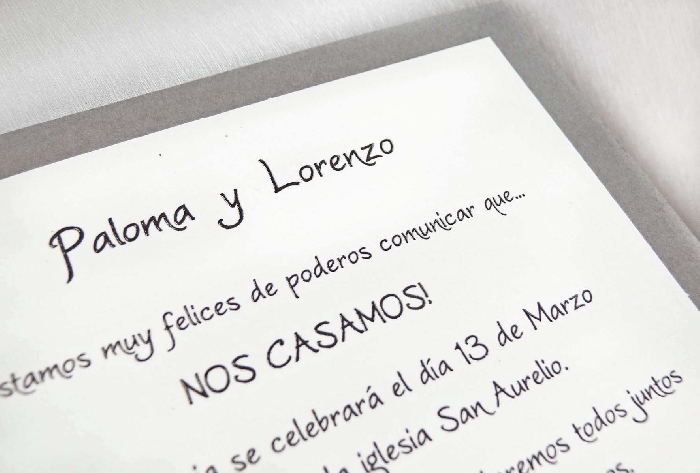 Paloma y Lorenzo
stamos muy felices de poderos comunicar que...
NOS CASAMOS!
se celebrará el día 13 de Marzo
iglesia San Aurelio.
todos juntos